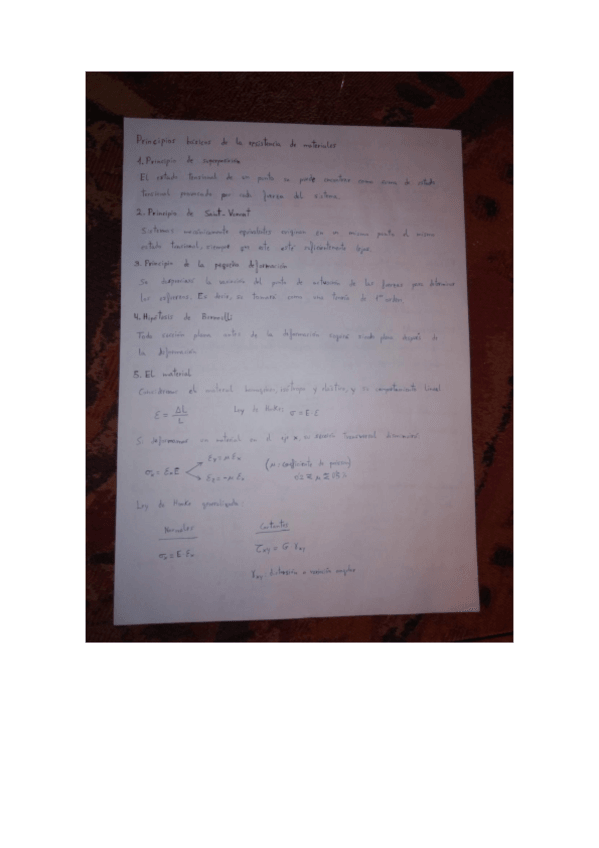 Principios básicos de la resistencia de materiales
1. Principio de superposición
El estado tensional de un punto se puede considerar como suma de estado
tensional provocado por cada fuerza del sistema.
2. Principio de Saint-Venant
Sistemas equivalentes originan en un mismo punto el mismo
estado tensional, siempre que este esté suficientemente lejos.
3. Principio de la pequeña deformación
Se despreciará la variación del punto de actuación de las fuerzas para determinar
los esfuerzos. Es decir, se tomará como una teoría de 1er orden.
4. Hipótesis de
Toda sección plana antes de la deformación seguirá siendo plana después de
la deformación
5. El material
material homogéneo, isótropo y elástico, y su comportamiento lineal
ε = ΔL / L Ley de Hooke: σ = E · ε
Si deformamos un material en el eje x, su sección transversal disminuirá
(μ: coeficiente de poisson)
Ley de Hooke generalizada:
Normales Cortantes
σx = E · εx τxy = G · γxy
γxy: distorsión o variación angular